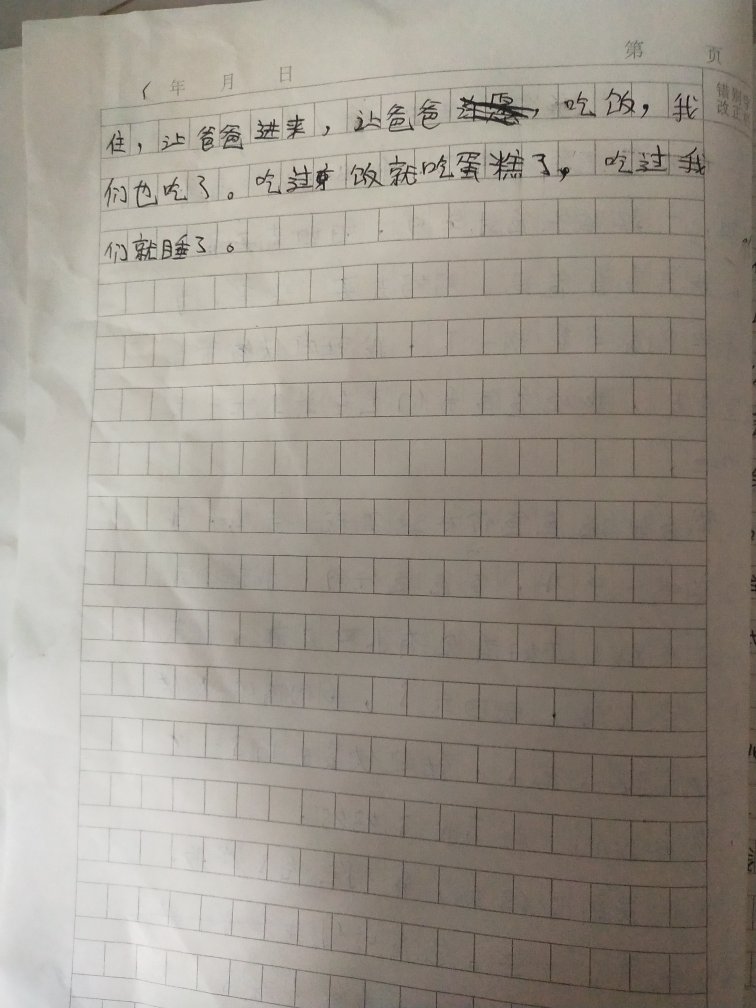 第 页
年 月 日
错别字
改正
住，让爸爸进来，让爸爸，吃饭，我
们也吃了。吃过饭就吃蛋糕了，吃过我
们就睡了。